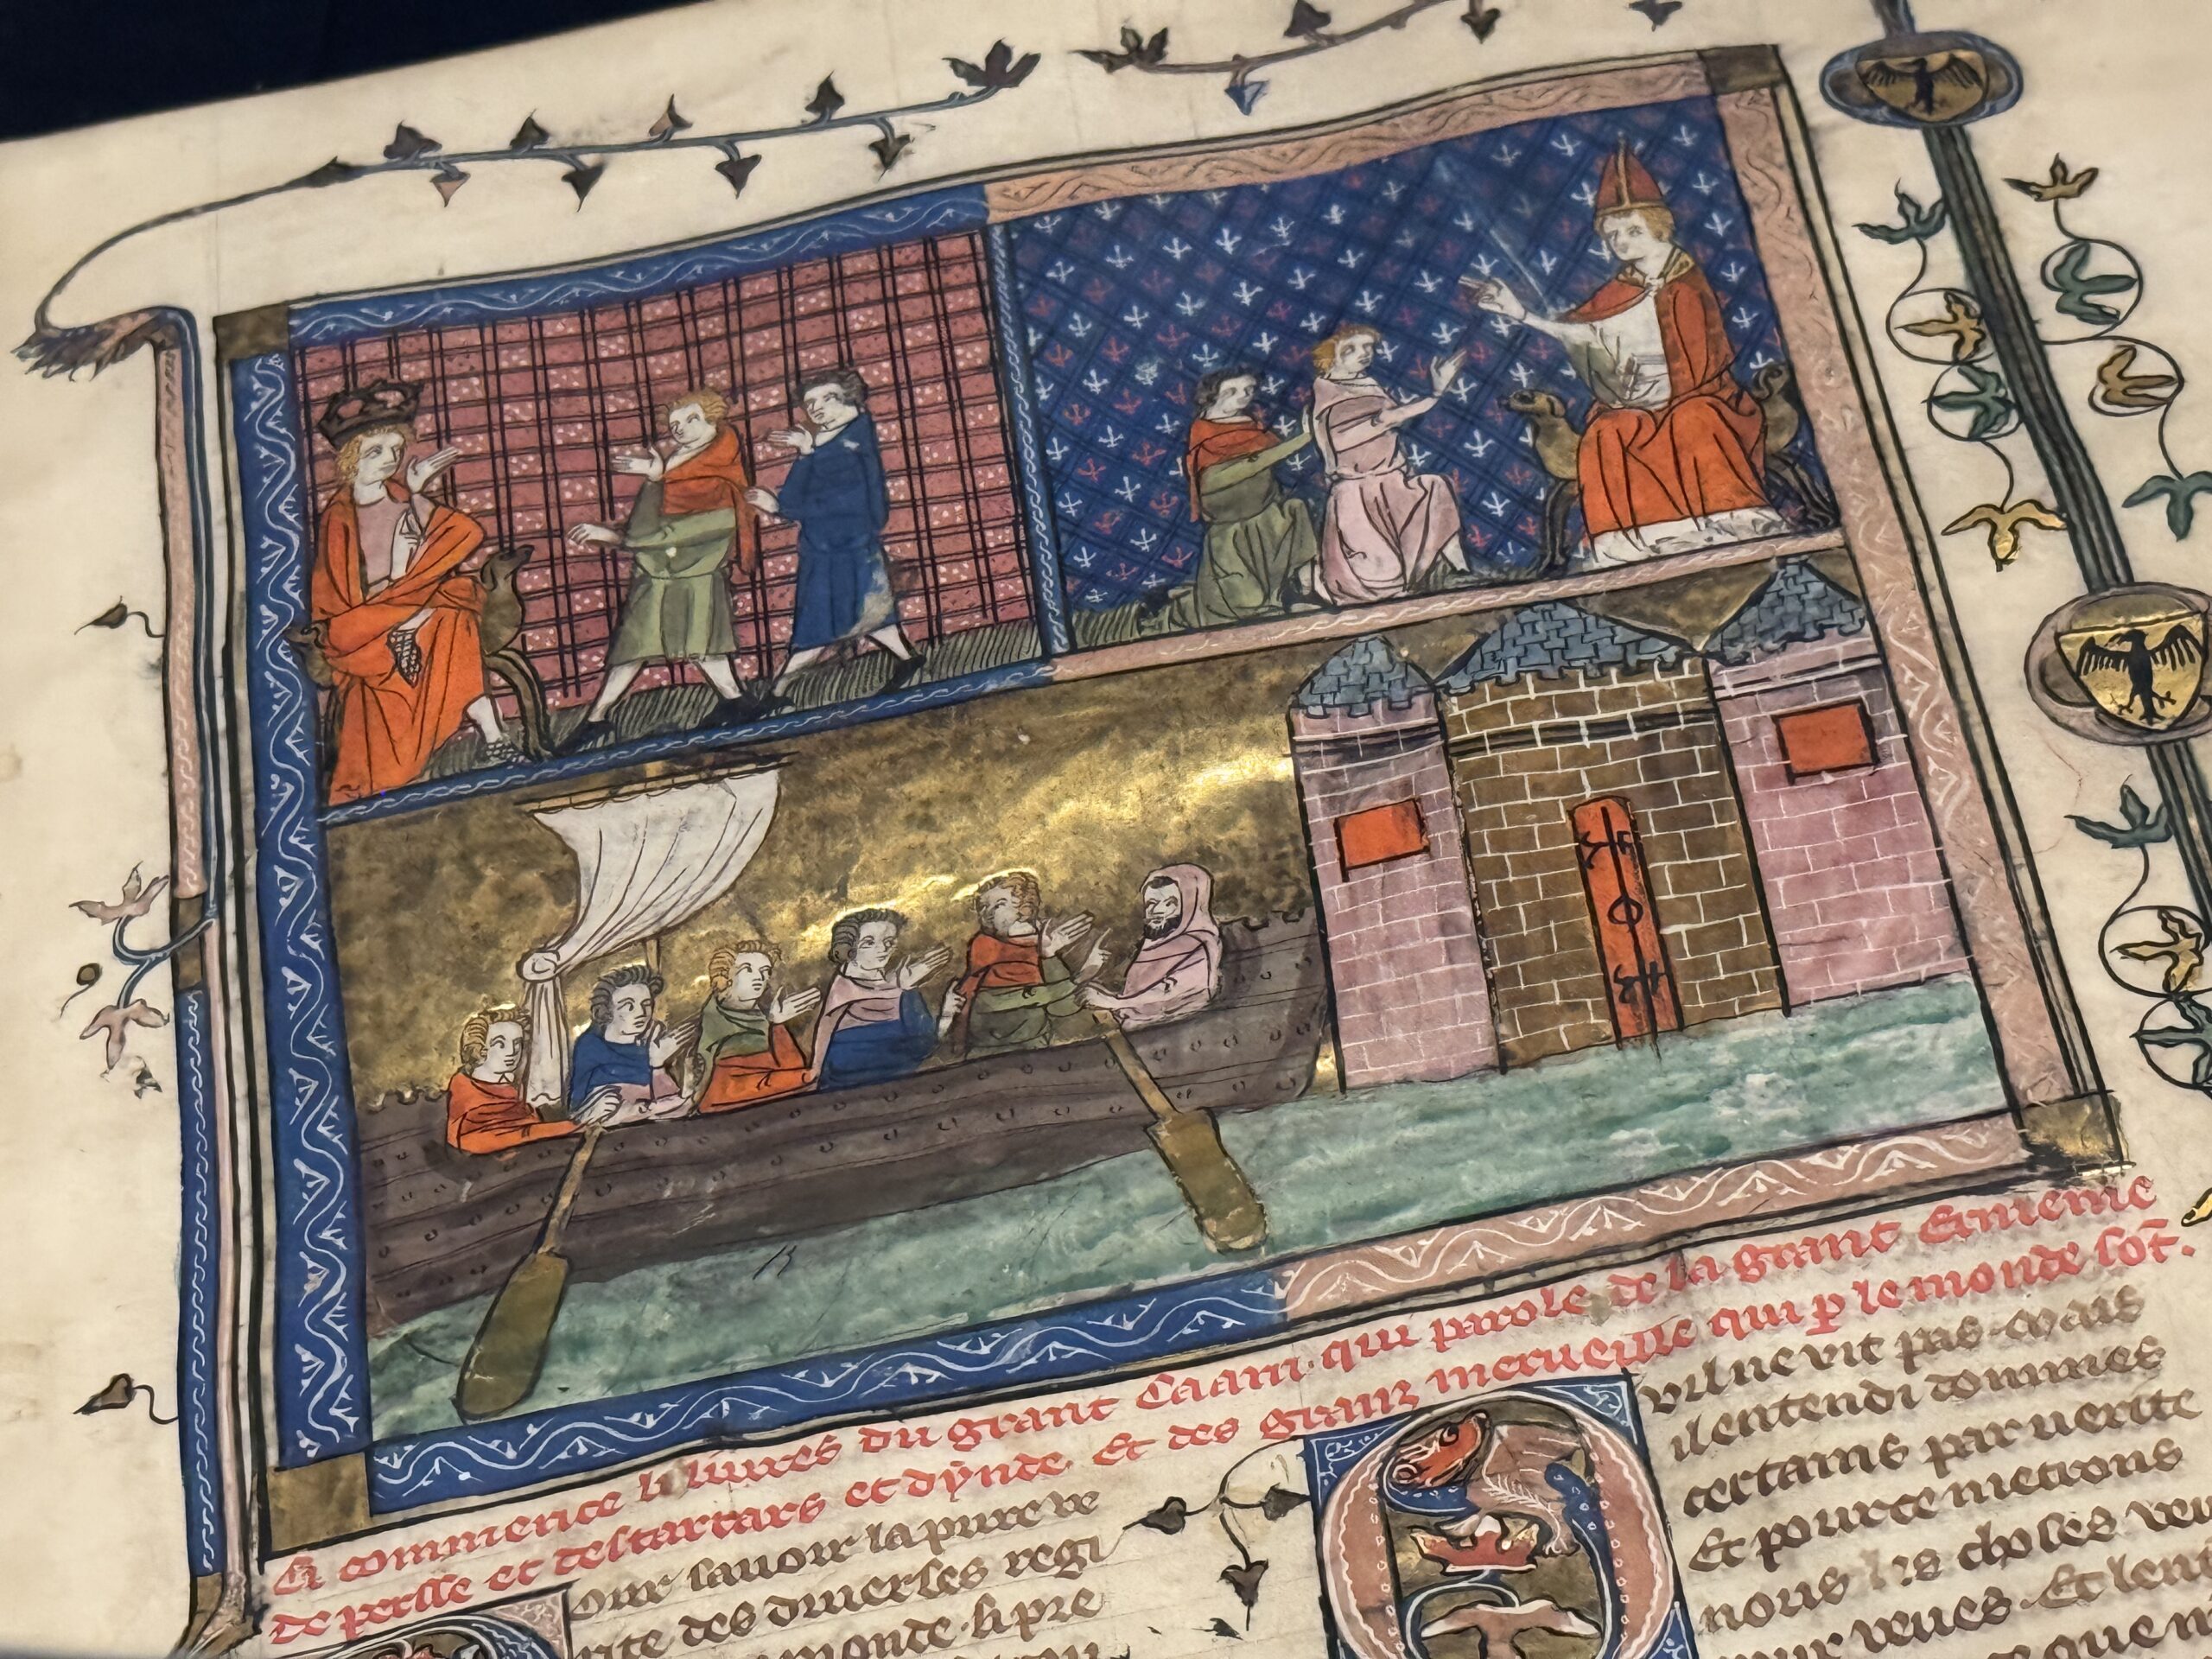 Ci commence li liures du grant Caam. qui parole de la grant Ermenie
de persse et des tartars et dynde. Et des granz merueilles qui p le monde sot.
our sauoir la pure ve
rite des diuerses regi
monde. si pre
uil ne vit pas. mais
il entendi dommes
certains par uerite
Et pource metrons
nous les choses veu
pour veues. Et lent
que n